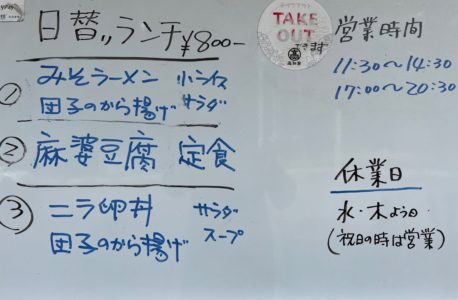 日替りランチ ¥800-
① みそラーメン 小ライス
団子のから揚げ サラダ
② 麻婆豆腐 定食
③ ニラ卵丼 サラダ
団子のから揚げ スープ
TAKE
OUT
できます
営業時間
11:30〜14:30
17:00〜20:30
休業日
水・木よう日
(祝日の時は営業)